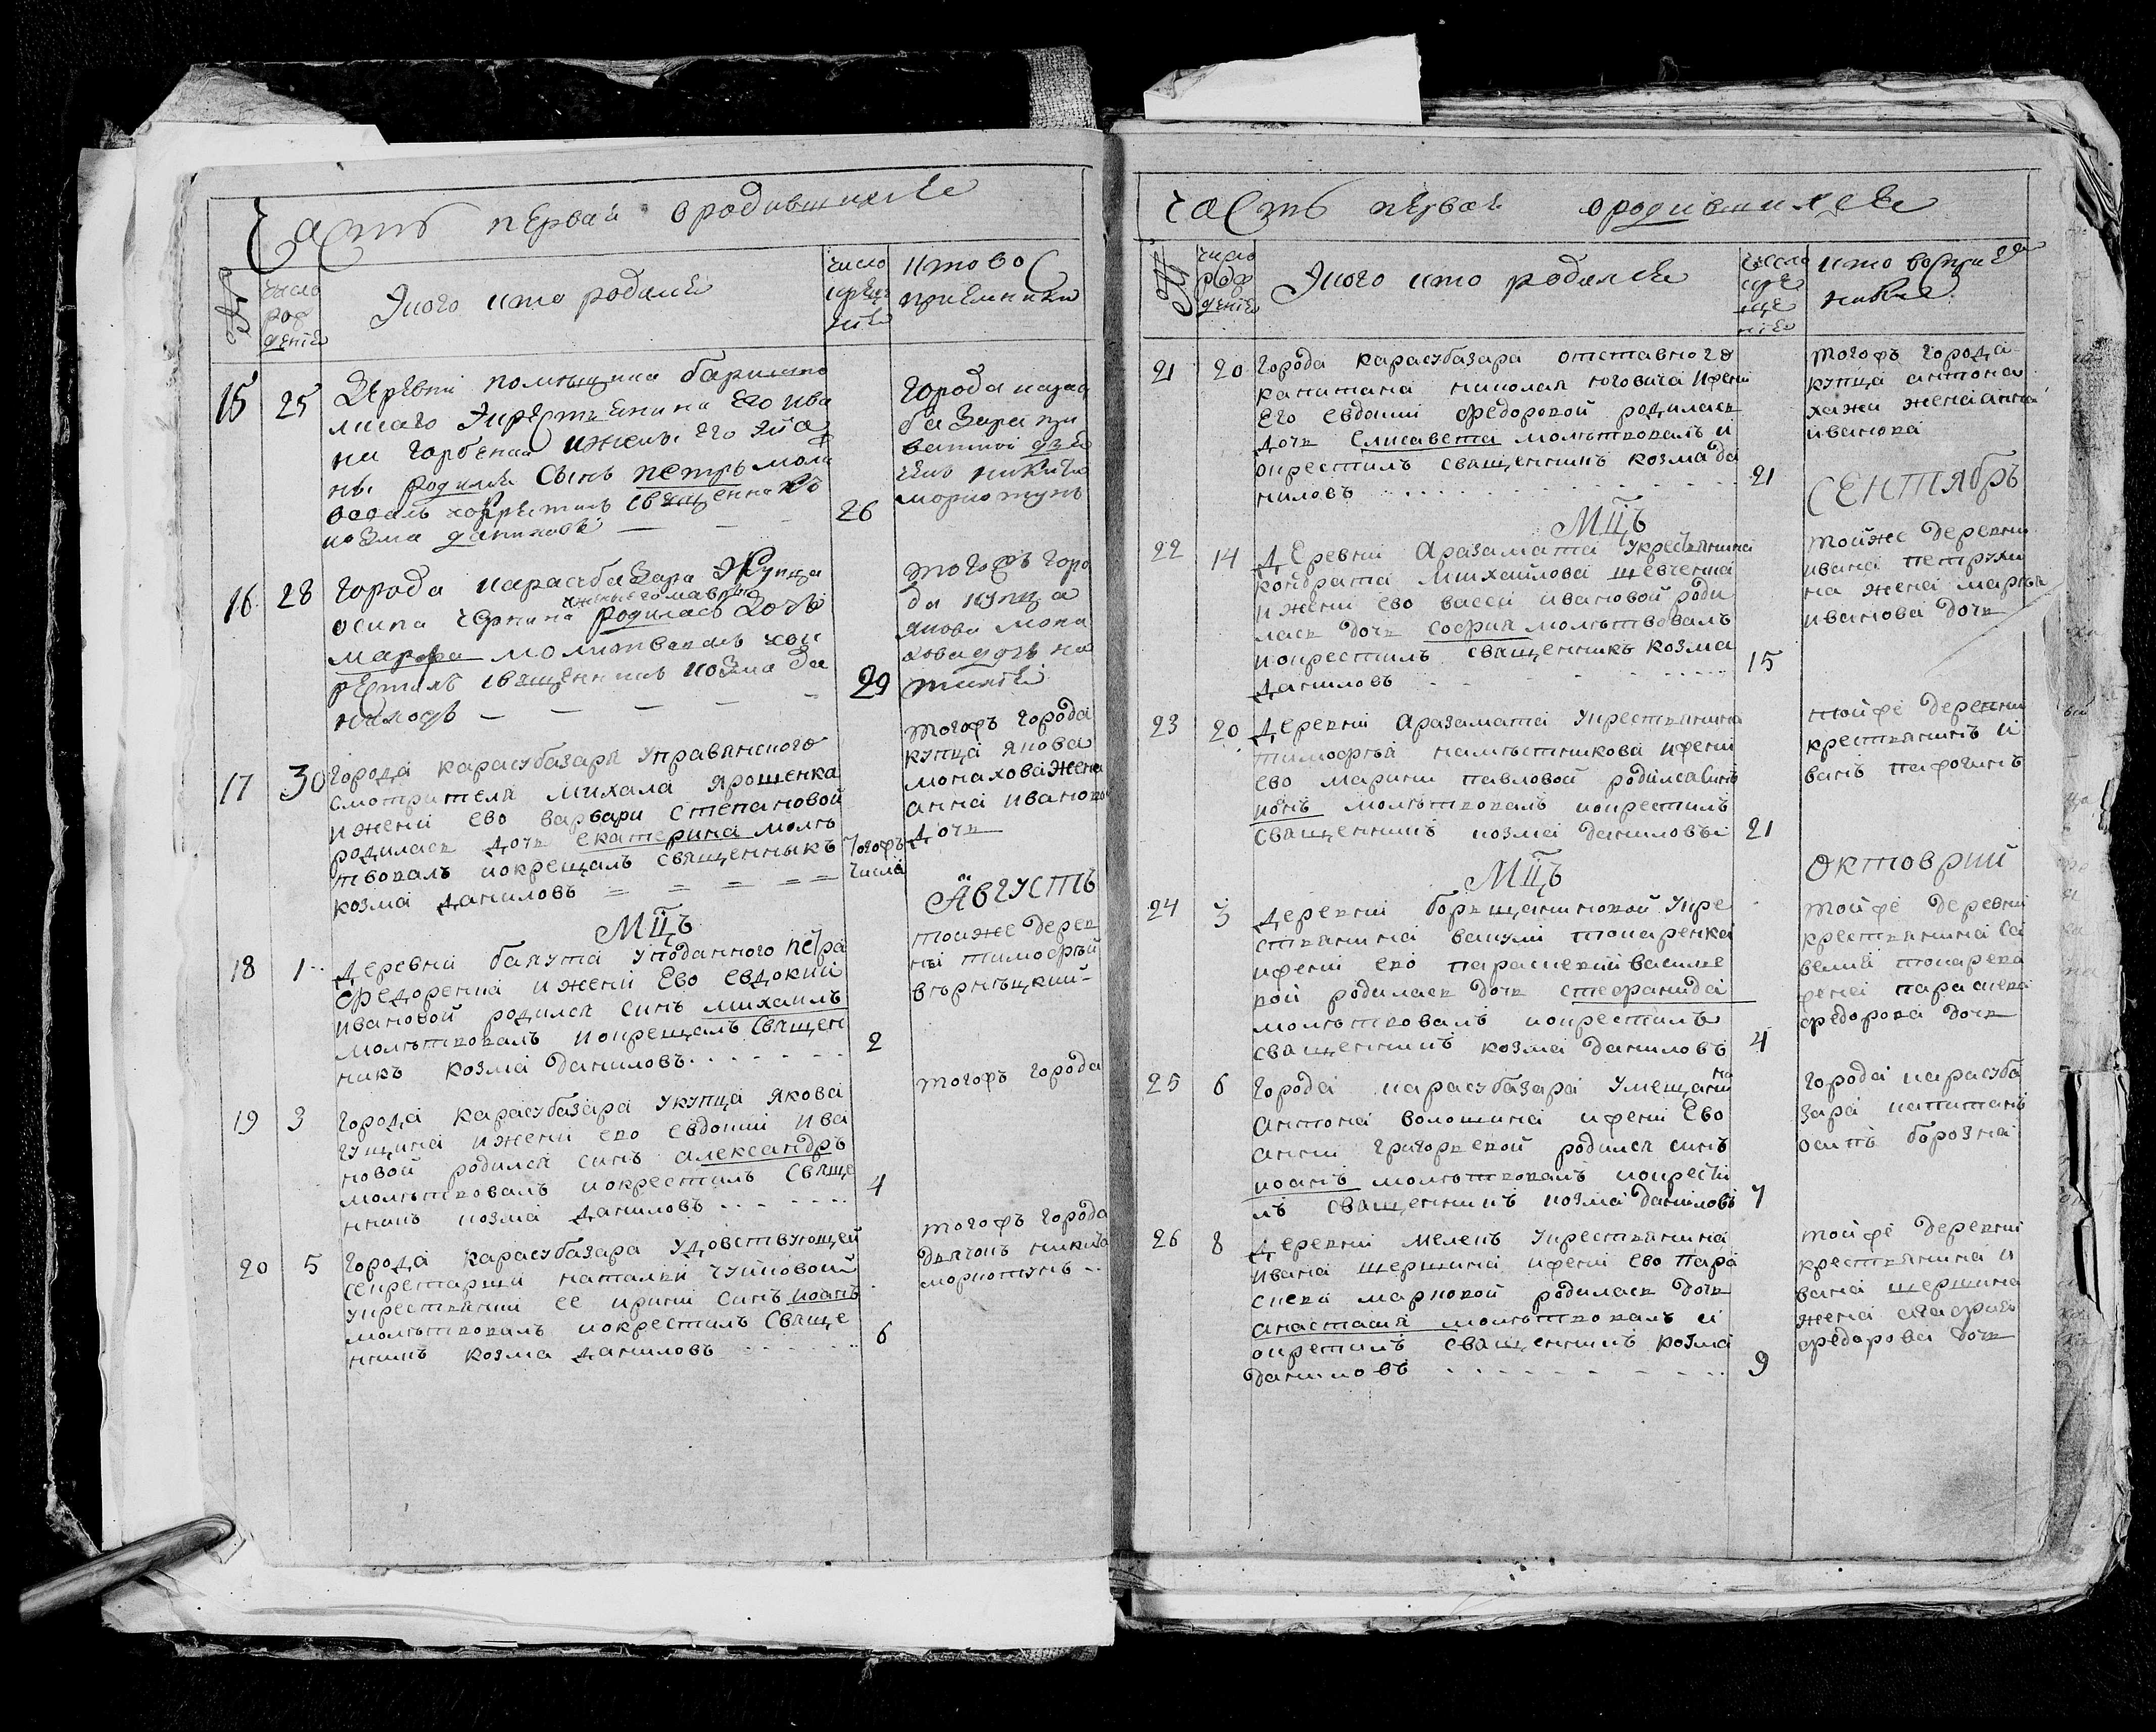 Часть первая о родившихся
№
число рождения
У кого кто родился
число крещения
кто воспріемники
15
25
Деревни помещика
лиcаго у крестьянина Его Ива
на Горбенка и жены Его
ны родился сынъ петръ мол
священникъ
козма даниловъ
26
Города караc
базара при
никита
мориотунъ
16
28
города карасубазара У Купца
осипа и жены его мавры родилась Дочь
марфа молитвовалъ и ок
рестилъ священникъ козма да
ниловъ
29
тогожъ горо
да купца
якова мона
хова дочь на
талия
17
30
города карасубазара Управянского
смотрителя михала ярошенка
и жени ево варвари степановой
родилась дочь екатерина молѣ
твовалъ и окрещалъ священникъ
козма даниловъ
Тогожъ числа
тогожъ города
купца якова
монахова жена
анна иванова
дочь
МЦЪ
АВГУСТЪ
18
1
деревни бакута у подданного петра
федоренка и жени Ево евдокии
ивановой родился синъ михаилъ
молѣтвовалъ и окрещалъ Священ
никъ козма даниловъ
2
тоиже дерев
ни тимофѣй
вѣрнѣцкий
19
3
города карасубазара у купца якова
гущина и жени ево евдокии ива
новой родился синъ александръ
молѣтвовалъ и окрестилъ Свяще
нникъ козма даниловъ
4
тогожъ города
20
5
города карасубазара удовствующей
секретарши наталии чуйковой
у крестьянки ее ирини синъ иоанъ
молѣтвовалъ и окрестилъ Свяще
нникъ козма даниловъ
6
тогожъ города
дьячокъ никита
мориотунъ
часть первая о родившихся
№
число рождения
У кого кто родился
число крещения
кто воспри
21
20
города карасубазара отставного
капитана николая юговича и жени
его евдокии федоровой родилась
дочь елисавета молѣтвовалъ и
окрестилъ священникъ козма да
ниловъ
21
тогожъ города
купца антона
хажи жена анна
иванова
МЦЪ
СЕНТЯБРЪ
22
14
деревни аразамата у крестьянина
кондрата михайлова шевченка
и жени ево васси ивановой роди
лась дочь софия молѣтвовалъ
и окрестилъ священникъ козма
даниловъ
15
тойже деревни
ивана петрухи
на жена марья
иванова дочь
23
20
деревни аразамата у крестьянина
тимофѣя намѣстникова и жени
ево марини павловой родился Синъ
иоанъ молѣтвовалъ и окрестилъ
священникъ козма даниловъ
21
тойже деревни
крестьянинъ и
ванъ пафочинъ
МЦЪ
ОКТОВРИЙ
24
3
деревни борщаниновой у кре
стьянина вакули токаренка
и жени ево параскевии василие
вой родилась дочь стефанида
молѣтвовалъ и окрестилъ
священникъ козма даниловъ
4
тойже деревни
крестьянина са
велия токарева
жена параскева
федорова дочь
25
6
города карасубазара у мещанина
антона волошина и жени Ево
анни григорьевой родился синъ
иоанъ молѣтвовалъ и окрести
лъ священникъ козма даниловъ
7
города карасуба
зара капитанъ
осипъ борозна
26
8
деревни мелекъ у крестьянина
ивана шершина и жени ево пара
скеви марковой родилась дочь
анастасия молѣтвовалъ и
окрестилъ священникъ козма
даниловъ
9
тойже деревни
крестьянина и
вана шершина
жена агафия
федорова дочь